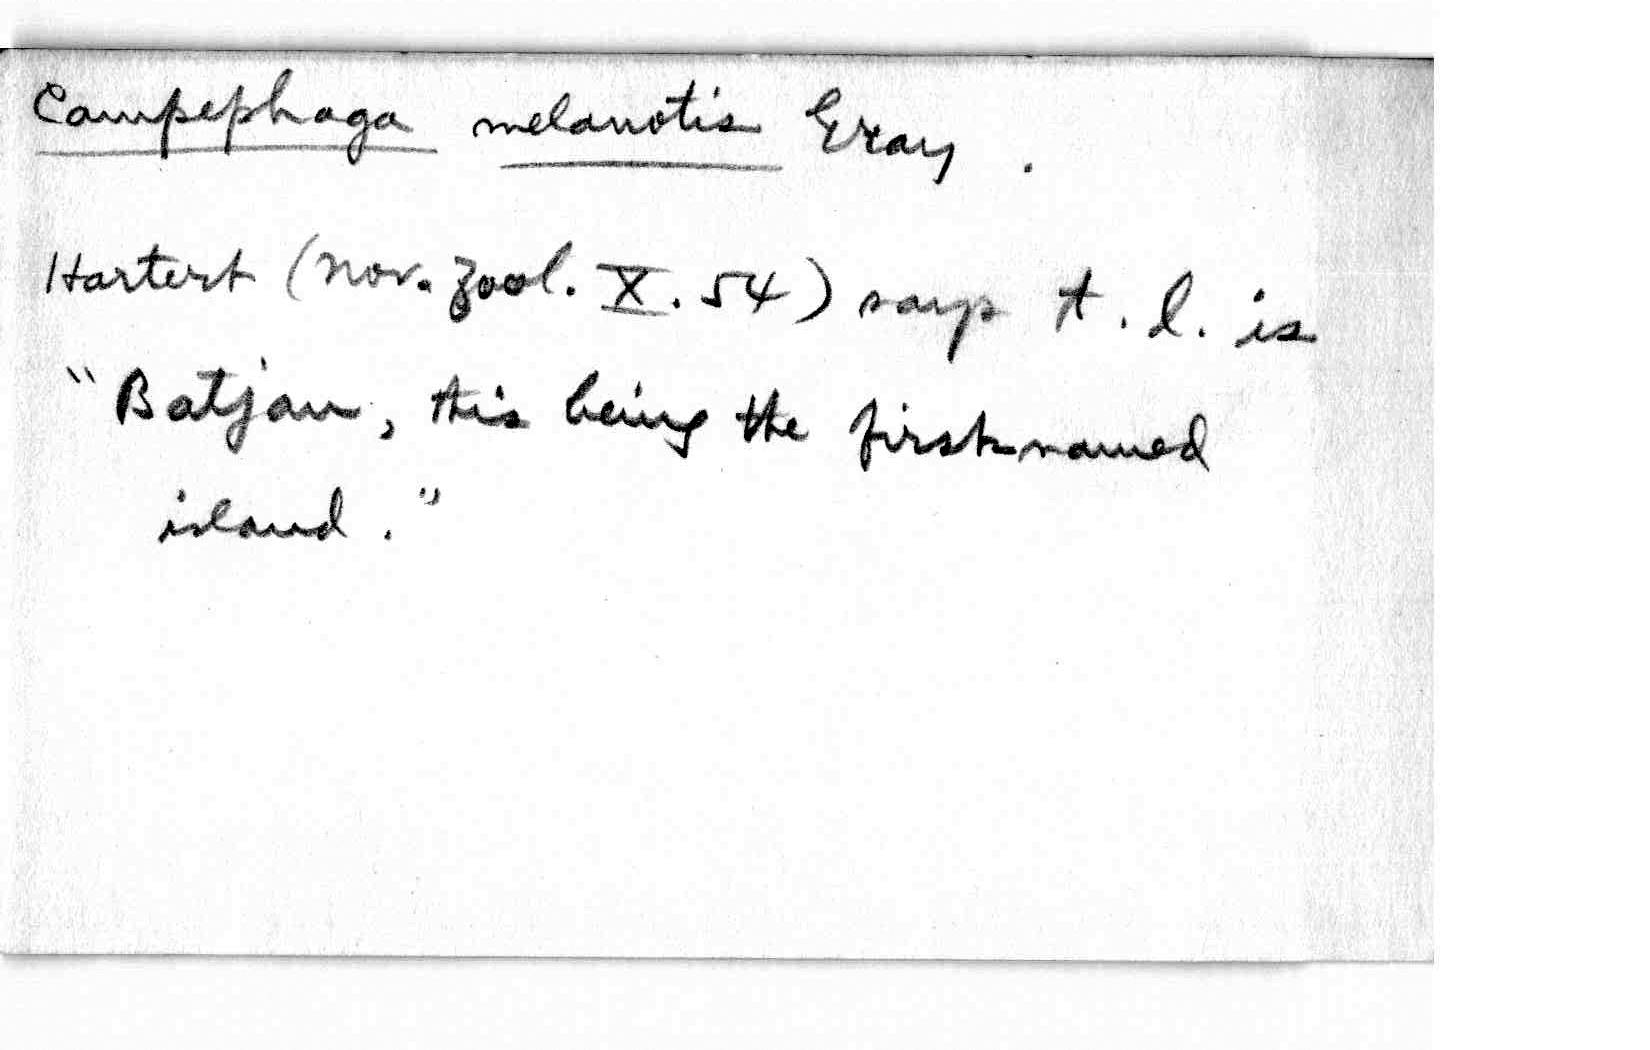 Campephaga melanotis Gray.
Hartert (Nov. Zool. X. 54) says t. l. is
"Batjan, this being the first-named
island."